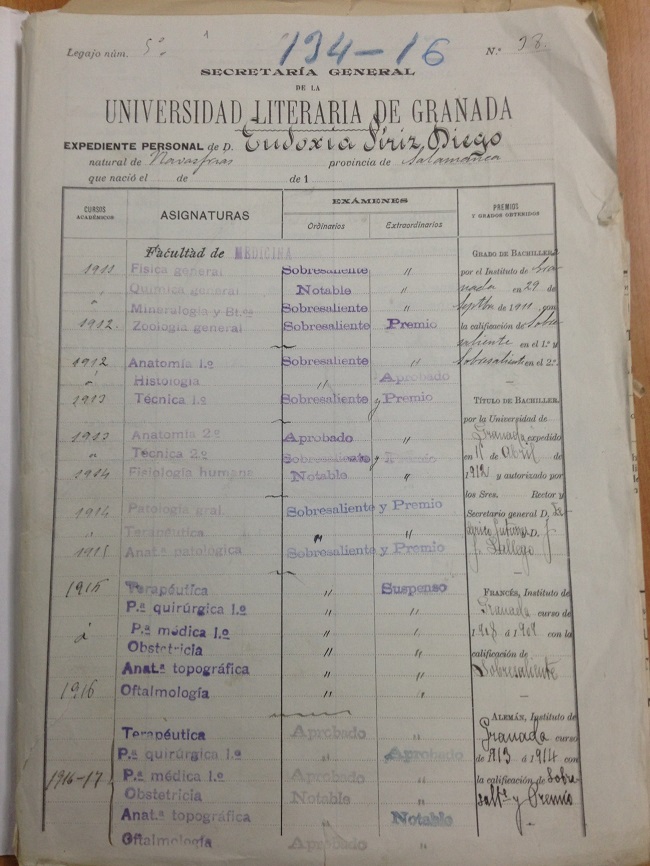 Legajo núm. 5º
194-16
N.º 38.
SECRETARÍA GENERAL
DE LA
UNIVERSIDAD LITERARIA DE GRANADA
EXPEDIENTE PERSONAL de D. Eudoxia Píriz Diego
natural de Navasfrias provincia de Salamanca
que nació el de de 1
CURSOS ACADÉMICOS
ASIGNATURAS
EXÁMENES
Ordinarios
Extraordinarios
PREMIOS
Y GRADOS OBTENIDOS
Facultad de MEDICINA
1911 Fisica general Sobresaliente "
" Quimica general Notable "
" Mineralogia y Bt.ª Sobresaliente "
1912. Zoologia general Sobresaliente Premio
1912 Anatomia 1.º Sobresaliente "
á Histologia " Aprobado
1913 Técnica 1.º Sobresaliente y Premio
1913 Anatomia 2º Aprobado "
" Técnica 2.º Sobresaliente y Premio
1914 Fisiologia humana Notable "
1914 Patologia gral. Sobresaliente y Premio
" Terapéutica " "
1915 Anat.ª patológica Sobresaliente y Premio
1915 Terapéutica " Suspenso
P.ª quirúrgica 1.º " "
á P.ª médica 1.º " "
Obstetricia " "
Anat.ª topográfica " "
1916 Oftalmología " "
Terapéutica Aprobado "
P.ª quirúrgica 1.º " Aprobado
1916-17 P.ª médica 1.º Aprobado "
Obstetricia Notable "
Anat.ª topográfica " Notable
Oftalmología Aprobado "
GRADO DE BACHILLER
por el Instituto de Gra-
nada en 29 de
Septbre de 1910 con
la calificación de Sobre
saliente en el 1.º y
Sobresaliente en el 2.º
TÍTULO DE BACHILLER,
por la Universidad de
Granada expedido
en 15 de Abril de
1912 y autorizado por
los Sres. Rector y
Secretario general D. Fe-
derico Gutiérrez y
J. Gallego
FRANCÉS, Instituto de
Granada curso de
1908 á 1909 con la
calificación de
Sobresaliente
ALEMÁN, Instituto de
Granada curso
de 1913 á 1914 con
la calificación de Sobre-
salte y Premio